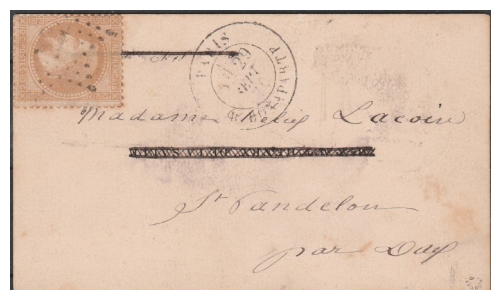 PARIS
29
SEPT
Madame Félix Lacoin
St Vandelon
par Dax